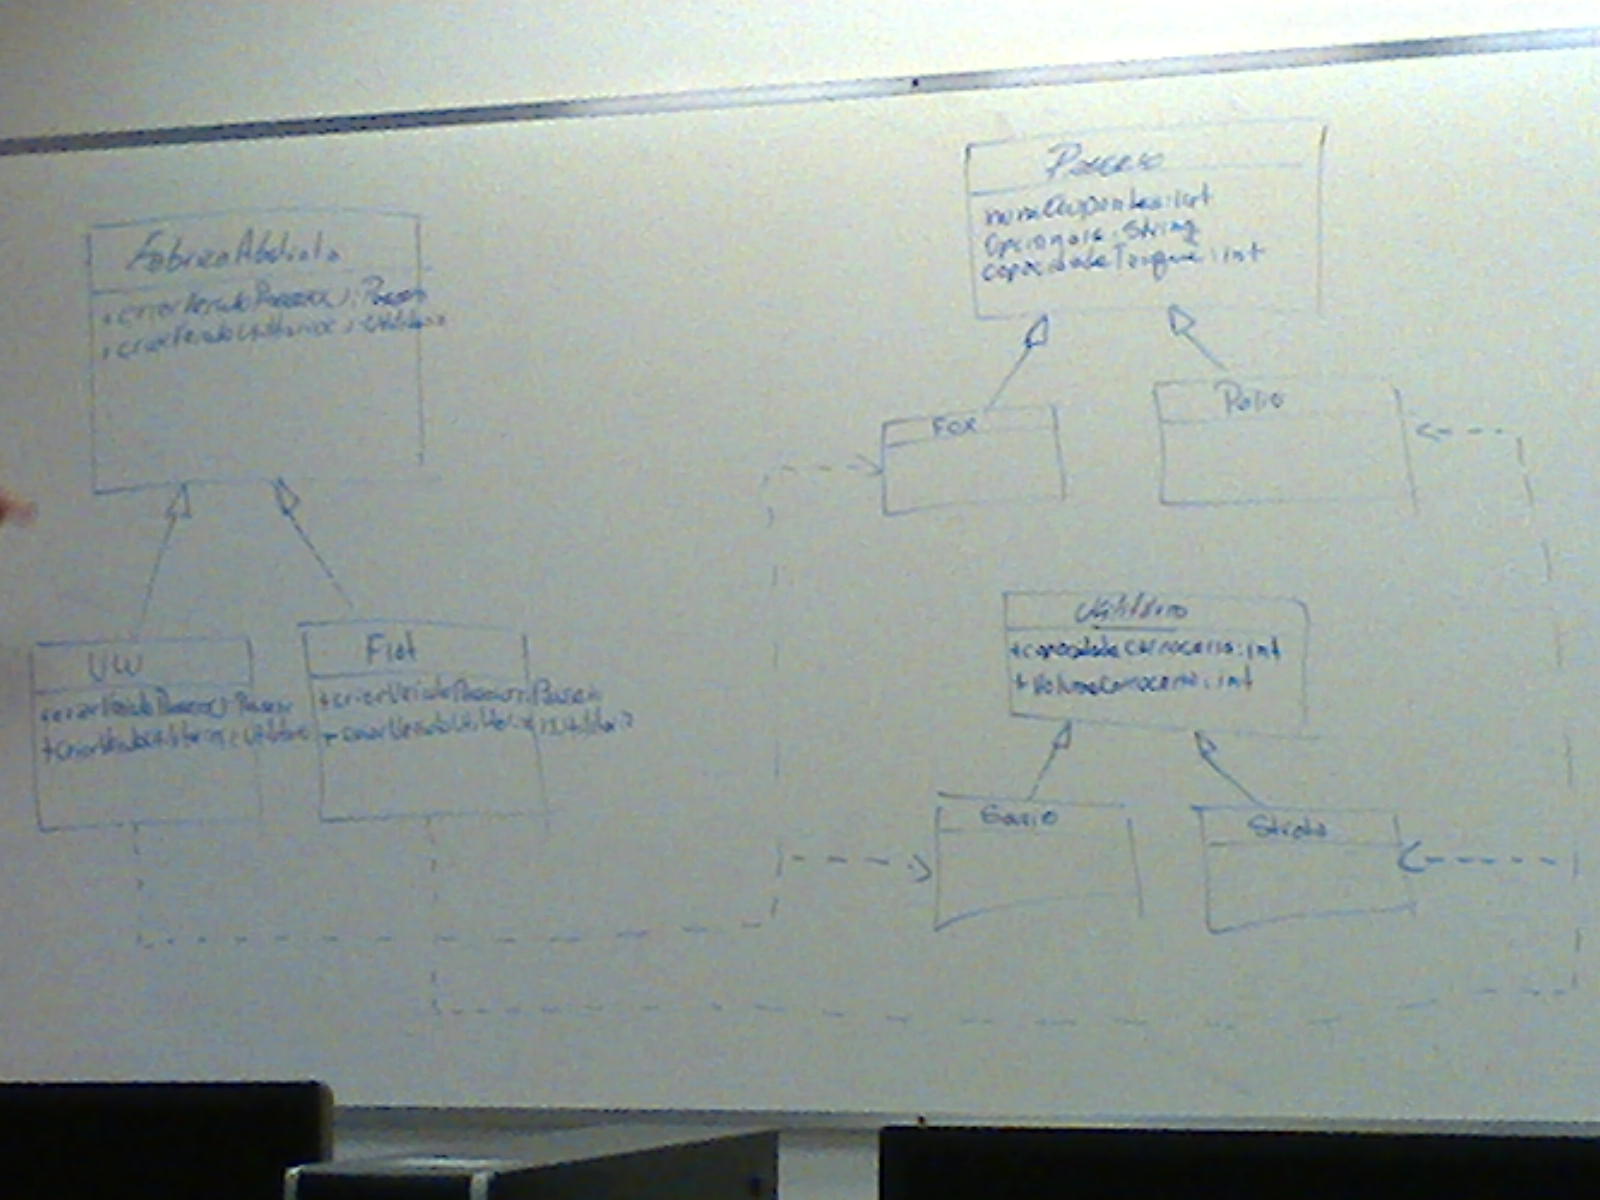 FabricaAbstrata
+criarVeiculoPasseio(): Passeio
+criarVeiculoUtilitario(): Utilitario
VW
+criarVeiculoPasseio(): Passeio
+criarVeiculoUtilitario(): Utilitario
Fiat
+criarVeiculoPasseio(): Passeio
+criarVeiculoUtilitario(): Utilitario
Passeio
numOcupantes: int
Opcionais: String
capacidadeTanque: int
Fox
Palio
Utilitário
+capacidadeCarroceria: int
+VolumeCarroceria: int
Saveiro
Strada